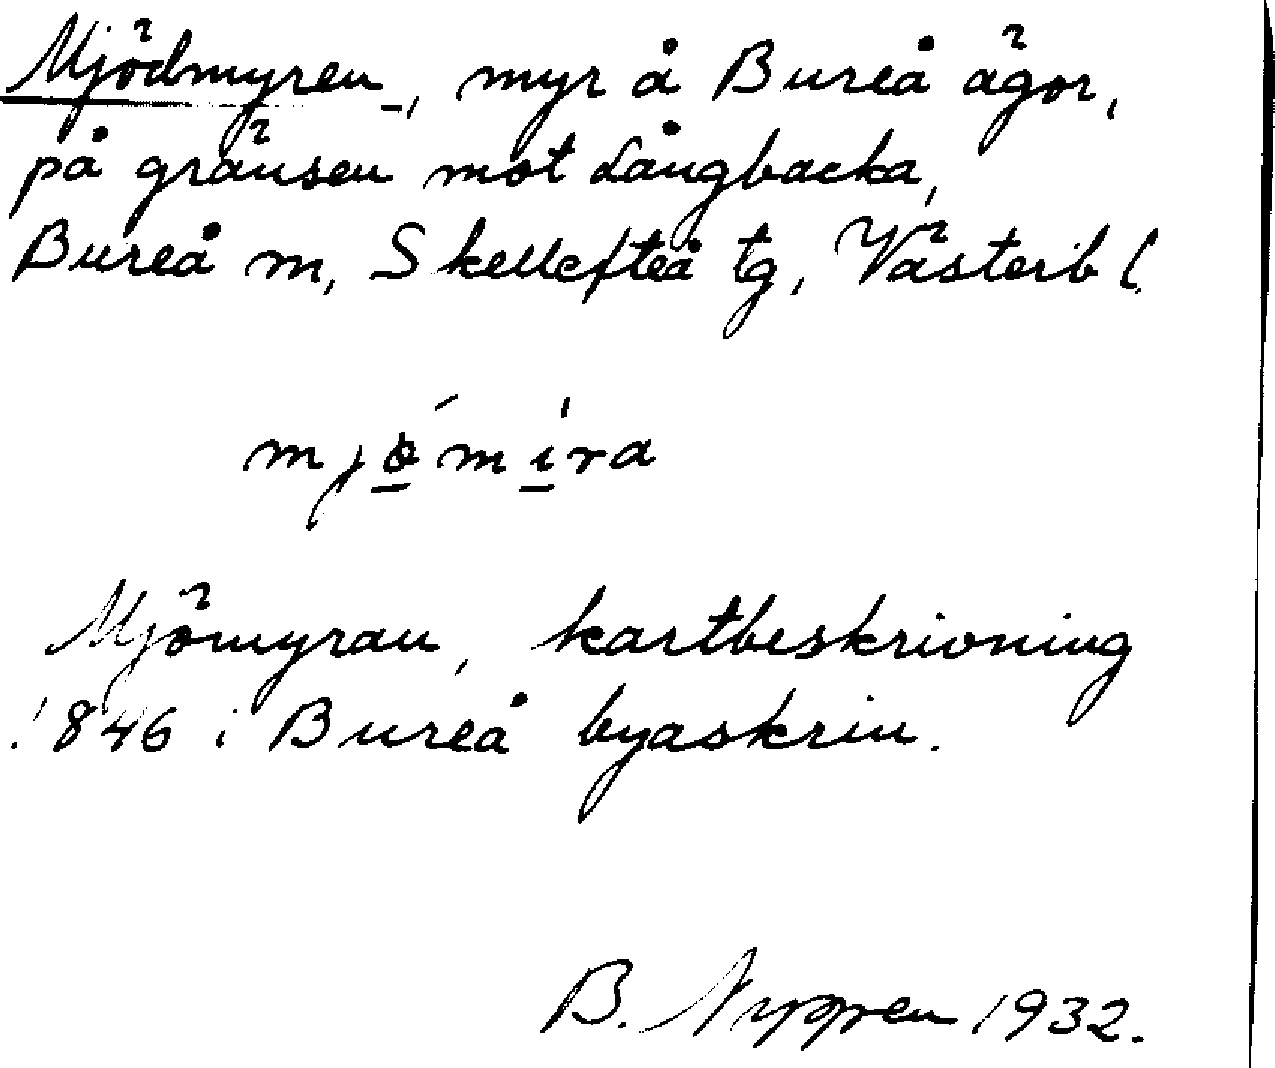 Mjödmyren, myr å Bureå ägor,
på gränsen mot Långbacka,
Bureå m, Skellefteå tg, Västerb l.
Mjömyran, kartbeskrivning
1846 i Bureå byaskrin.
B. 1932.